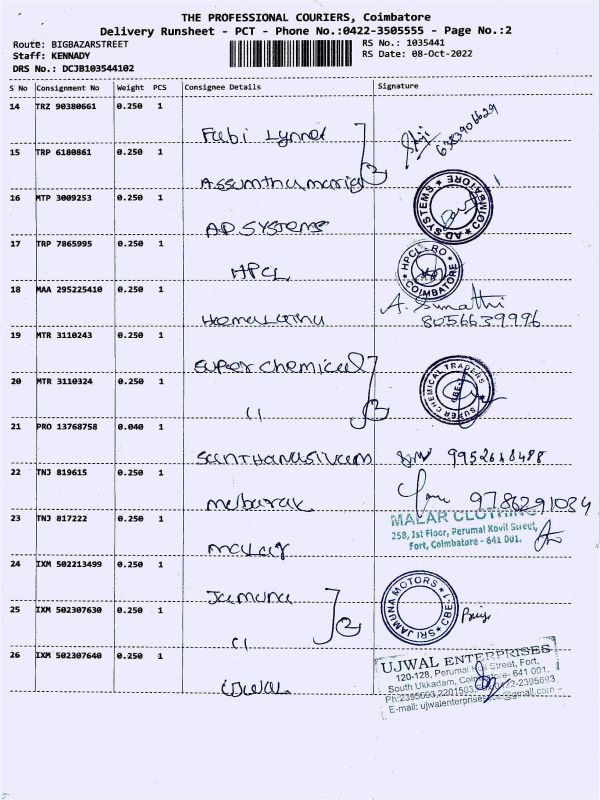 THE PROFESSIONAL COURIERS, Coimbatore
Delivery Runsheet - PCT - Phone No.:0422-3505555 - Page No.:2
Route: BIGBAZARSTREET
Staff: KENNADY
DRS No.: DCJB103544102
RS No.: 1035441
RS Date: 08-Oct-2022
S No Consignment No Weight PCS Consignee Details Signature
14 TRZ 90380661 0.250 1
Fabi Lynnal 6383906629
15 TRP 6180861 0.250 1
16 MTP 3009253 0.250 1
AD SYSTEMS COIMBATORE
A.D. SYSTEMS
17 TRP 7865995 0.250 1
HPCL HPCL - RO COIMBATORE
18 MAA 295225410 0.250 1
Hemalatha A. Sumathi
8056639996
19 MTR 3110243 0.250 1
Super chemical
SUPER CHEMICAL TRADERS CBE-1
20 MTR 3110324 0.250 1
11
21 PRO 13768758 0.040 1
9952648488
22 TNJ 819615 0.250 1
mubarak 9786291034
23 TNJ 817222 0.250 1
MALAR CLOTHING
258, 1st Floor, Perumal Kovil Street,
Fort, Coimbatore - 641 001.
malar
24 IXM 502213499 0.250 1
Jamuna
25 IXM 502307630 0.250 1
SRI JAMUNA MOTORS CBE-1
11
26 IXM 502307640 0.250 1
UJWAL ENTERPRISES
120-128, Perumal Street, Fort,
South Ukkadam, Coimbatore- 641 001,
Ph:2395693,2201503, 0422-2395693
E-mail: @gmail.com
UJWAL